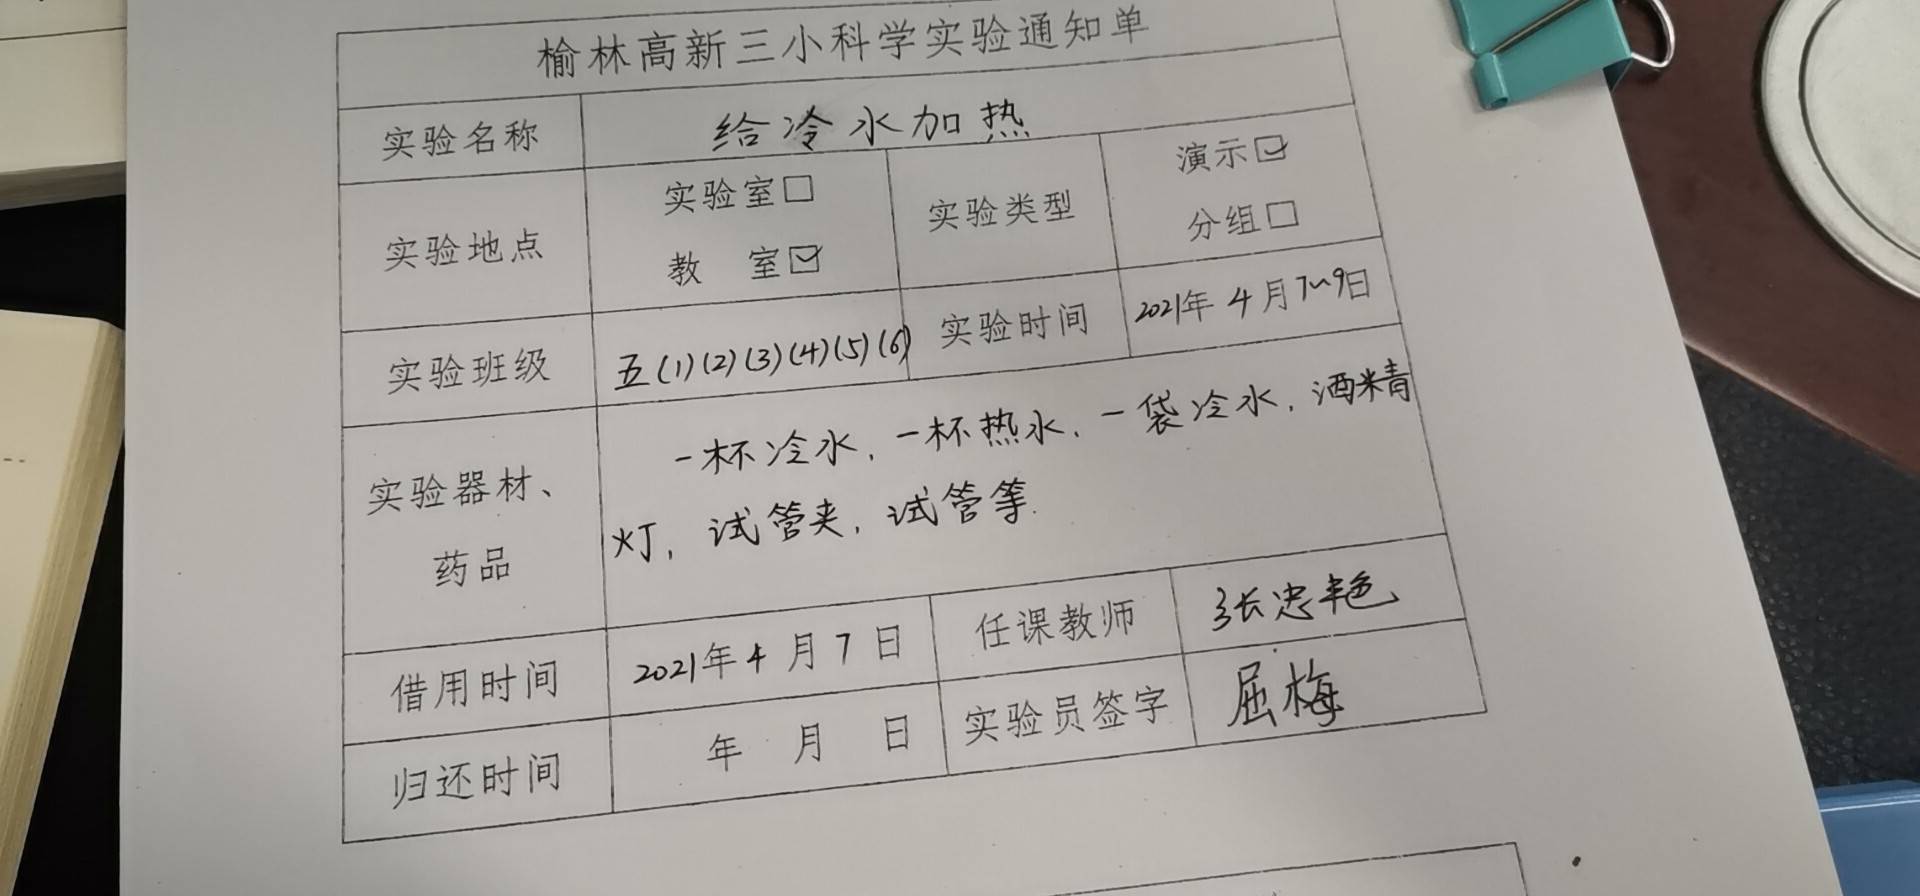 榆林高新三小科学实验通知单
实验名称 给冷水加热
实验地点 实验室□ 教 室☑ 实验类型 演示☑ 分组□
实验班级 五(1)(2)(3)(4)(5)(6) 实验时间 2021年4月7~9日
实验器材、药品 一杯冷水,一杯热水、一袋冷水,酒精
灯,试管夹,试管等.
借用时间 2021年4月7日 任课教师 张忠艳
归还时间 年 月 日 实验员签字 屈梅